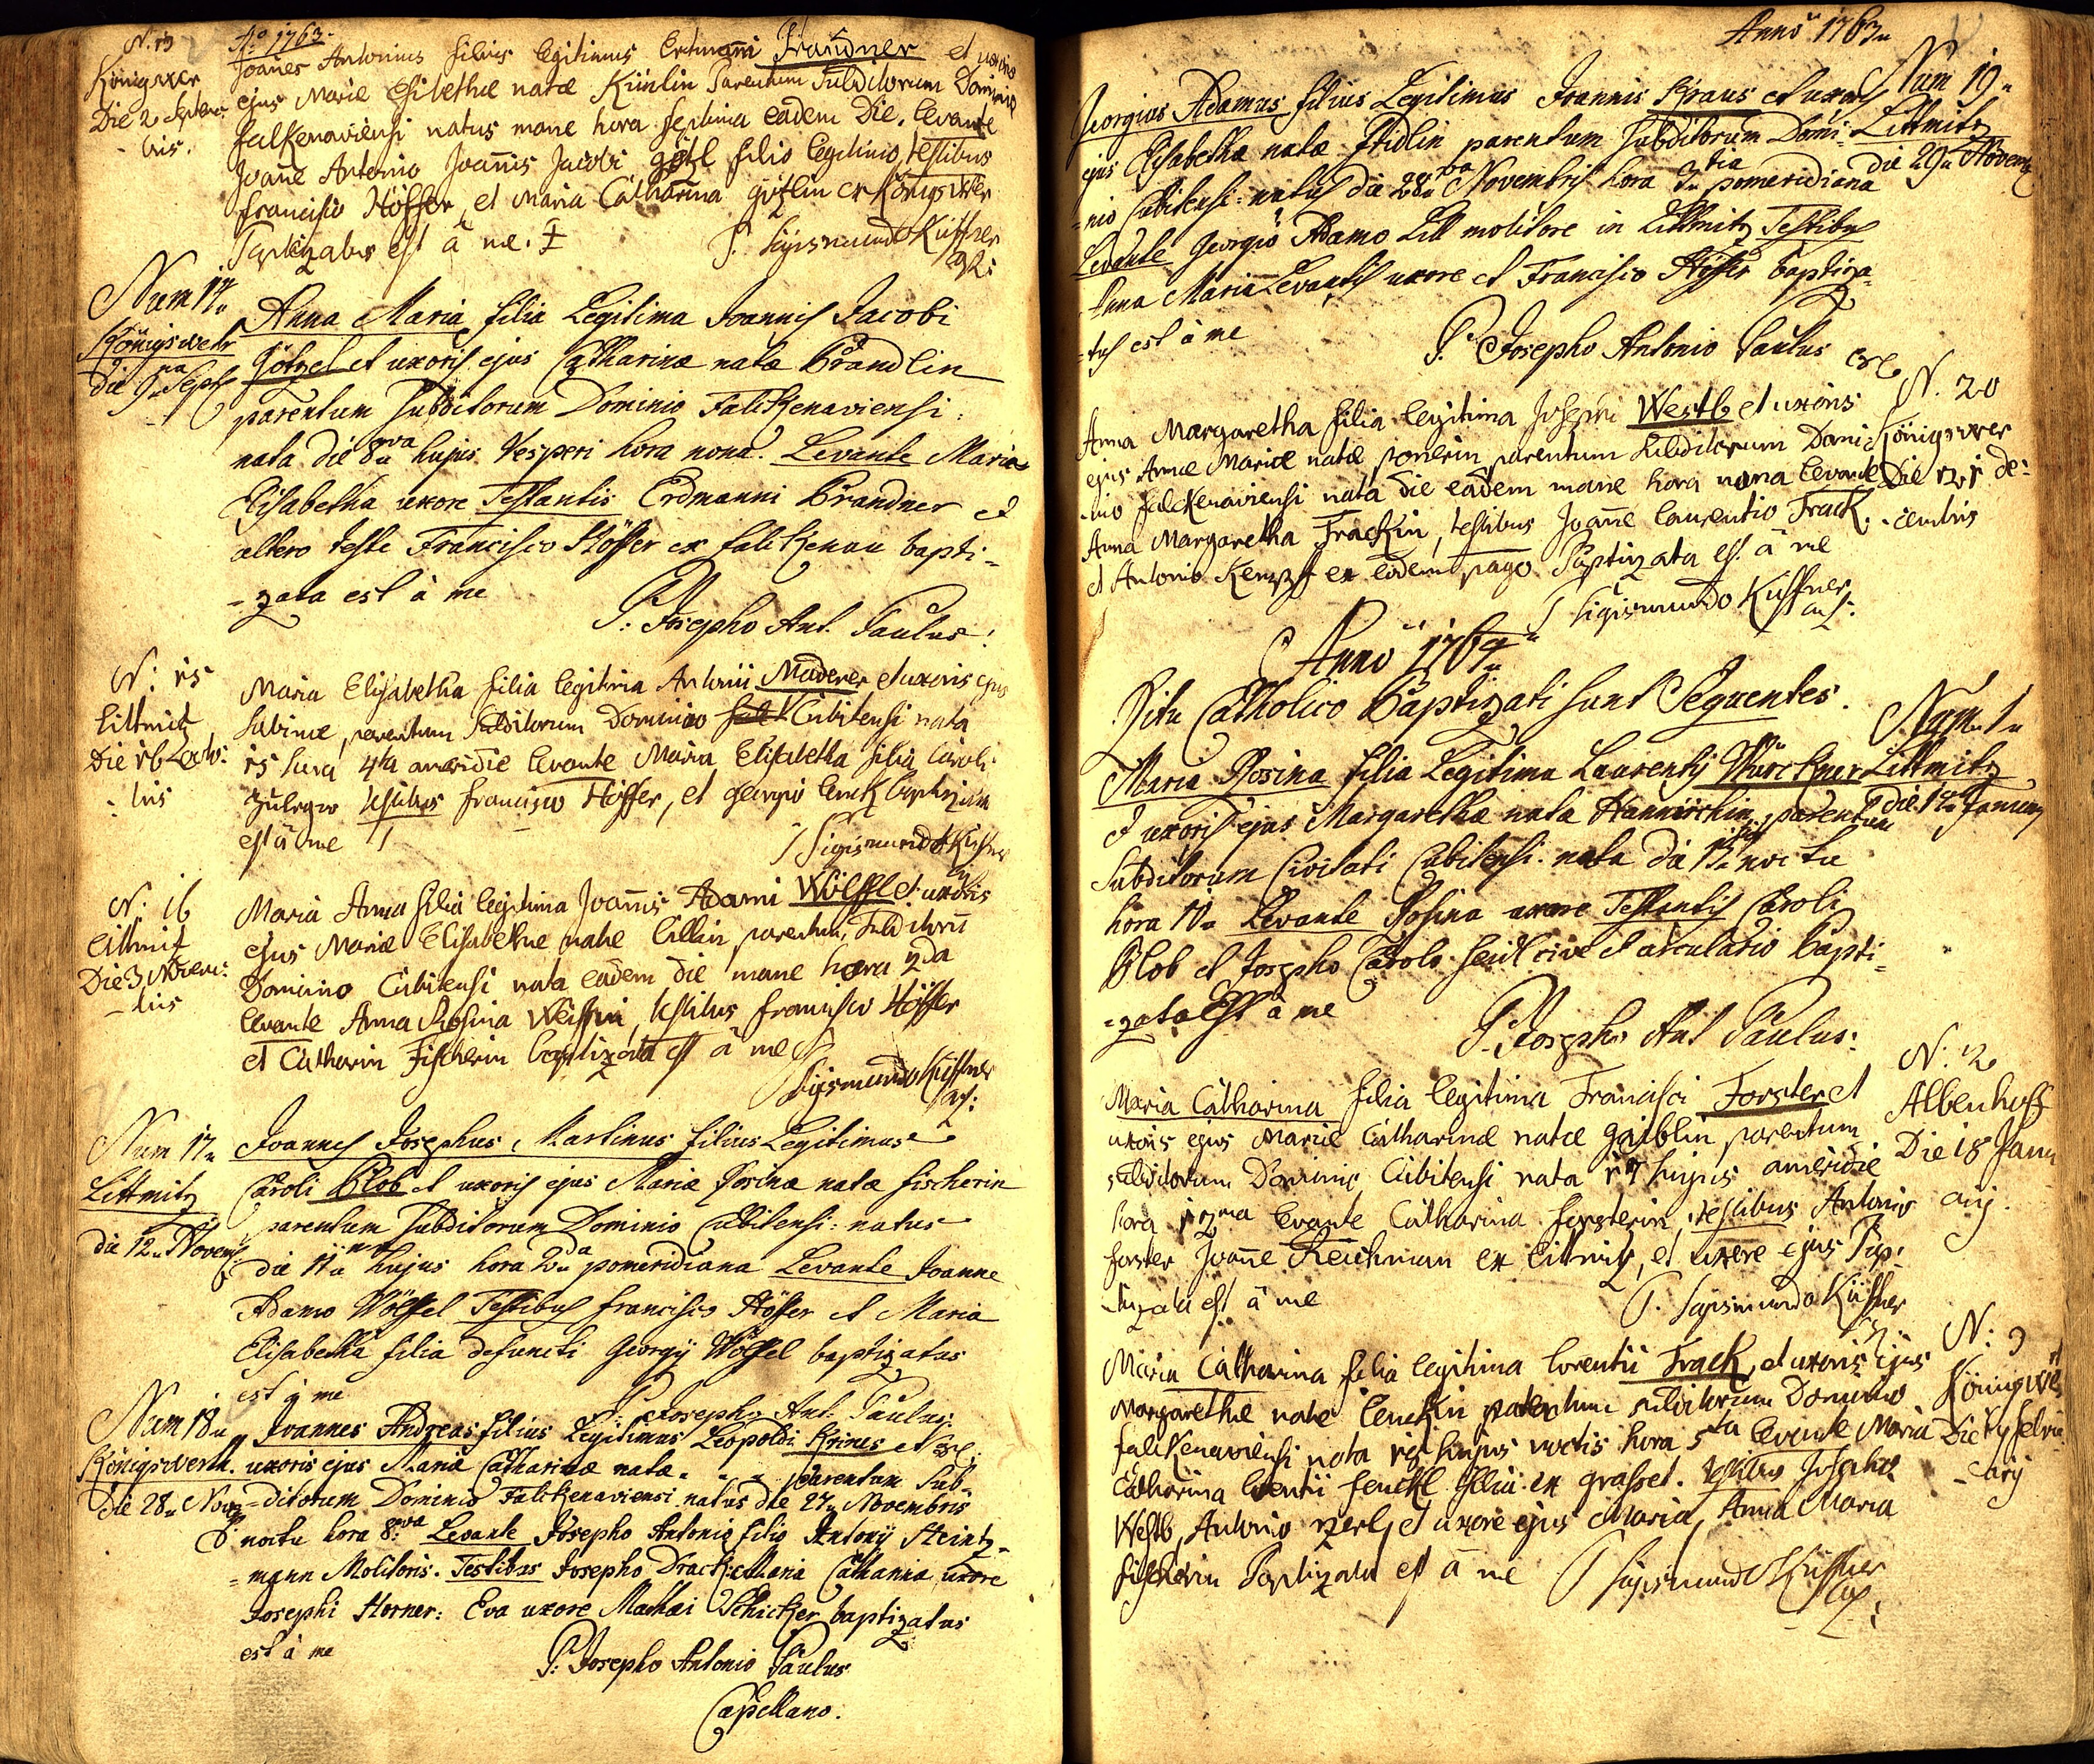 N. 13
Königswer
Die 2 Septem:
- bris.
Aō 1763.
Joañes Antonius filius legitimus Erdmañi Brandner et uxoris
ejus Mariæ Elisbethæ natæ Künlin Parentum Subditorum Dominio
falkenaviensi natus mane hora septima eadem Die. levante
Joañe Antonio Joañis Jacobi götzl filio legitimo, testibus
francisco Höffer, et Maria Catharina götzlin ex Königswer
Baptizatus est â me.
P. Sigismundo Küffner
Num 14
Königswehr
die 9na Sept
Anna Maria filia Legitima Joannis Jacobi
Götzel et uxoris ejus Catharinæ natæ Brandlin
parentum Subditorum Dominio Falckenaviensi:
nata die 8va hujus Vesperi hora nona. Levante Maria
Elisabetha uxore Testantis Erdmanni Brandner et
altero teste Francisco Höffer ex falckenau bapti=
=zata est à me
P: Josepho Ant. Paulus:
N: 15
Littmitz
Die 16 octo:
- bris
Maria Elisabetha filia legitima Antonii Maderer et uxoris ejus
Sabinæ, parentum Subditorum Dominio Cubitensi nata
15 hora 4ta meridie levante Maria Elisabetha filia Caroli
testibus francisco Höffer, et georgio lenck baptizata
est â me
P Sigismundo Küffner
N: 16
Littmitz
Die 3 Novem:
- bris
Maria Anna filia legitima Joañis Adami Wölffl et uxoris
ejus Mariæ Elisabethæ natæ Lillin, parentum Subditorū
Dominio Cubitensi nata eadem die mane hora 2da
levante Anna Rosina, testibus francisco Höffer
et Catharin Fischerin baptizata est â me
P Sigismundo Küffner
Num 17
Littmitz
die 12 Novemb
Joannes Josephus Martinus filius Legitimus
Caroli Blob et uxoris ejus Mariæ Rosinæ natæ fischerin
parentum Subditorum Dominio Cubitensi: natus
die 11 hujus hora 2da pomeridiana Levante Joanne
Adamo Wölffel Testibus francisco Höffer et Maria
Elisabetha filia defuncti Georgij Wölffel baptizatus
est à me
P: Josepho Ant. Paulus.
Num 18
Königswerth.
die 28 Nov
Joannes Andreas filius Legitimus Leopoldi Krines et
uxoris ejus Mariæ Catharinæ natæ - - - parentum Sub=
=ditorum Dominio Falckenaviensi natus die 27 Novembris
noctu hora 8va Levante Josepho Antonio filio Antonij Steintz=
=mann Molitoris. Testibus Josepho Drack: Maria Catharina uxore
Josephi Horner: Eva uxore Mathæi Schicker baptizatus
est à me
P: Josepho Antonio Paulus
Capellano.
Anno 1763
Num 19
Littmitz
die 29 Novem
Georgius Adamus filius Legitimus Joannis Kraus et uxoris
ejus Elisabethæ natæ Stidlin parentum Subditorum Domi=
=nio Cubitensi: natus die 28va Novembris hora 3tia pomeridiana
Levante Georgio Adamo Lill molitore in Littmitz Testibus
Anna Maria Levantis uxore et Francisco Höffer baptiza=
=tus est à me
P: Josepho Antonio Paulus
N. 20
Königswer
Die 12 de:
- cembris
Anna Margaretha filia legitima Josephi Westb et uxoris
ejus Annæ Mariæ natæ parentum Subditorum Domi
nio falckenaviensi nata die eadem mane hora nona levante
Anna Margaretha Trackin, testibus Joañe Laurentio Track.
et Antonio ex eodem pago Baptizata est â me
P Sigismundo Küffner
Anno 1764
Ritu Catholico Baptizati sunt Sequentes.
Num. 1
Littmitz
die 12 Januarij
Maria Rosina filia Legitima Laurentij Würckner
et uxoris ejus Margarethæ natæ parentum
Subditorum Civitati Cubitensi nata die 11 noctu
hora 10 Levante Rosina uxore Testantis Caroli
Blob et Josepho Carolo Seidl cive et arculario bapti=
=zata Est à me
P: Josepho Ant Paulus:
N: 2
Albenhoff
Die 18 Janu
arij.
Maria Catharina filia legitima Francisci Forster et
uxoris ejus Mariæ Catharinæ natæ gaiblin parentum
subditorum Dominio Cubitensi nata 17 hujus meridie
hora 12ma levante Catharina forsterin, testibus Antonio
forster Joañe Reichman ex Litmitz, et uxore ejus Bap:
tizata est â me
P. Sigismundo Küffner
N: 3
Königswer
Die 17 febru
- arij
Maria Catharina filia legitima Lorentii Track, et uxoris ejus
Margarethæ natæ lenckin parentum subditorum Dominio
falckenaviensi nata 16 hujus noctis hora 5ta levante Maria
Catharina lorentii filia ex grasset. testibus Josepho
Westb, Antonio, et uxore ejus Maria, Anna Maria
fischerin Baptizata est â me
P Sigismundo Küffner